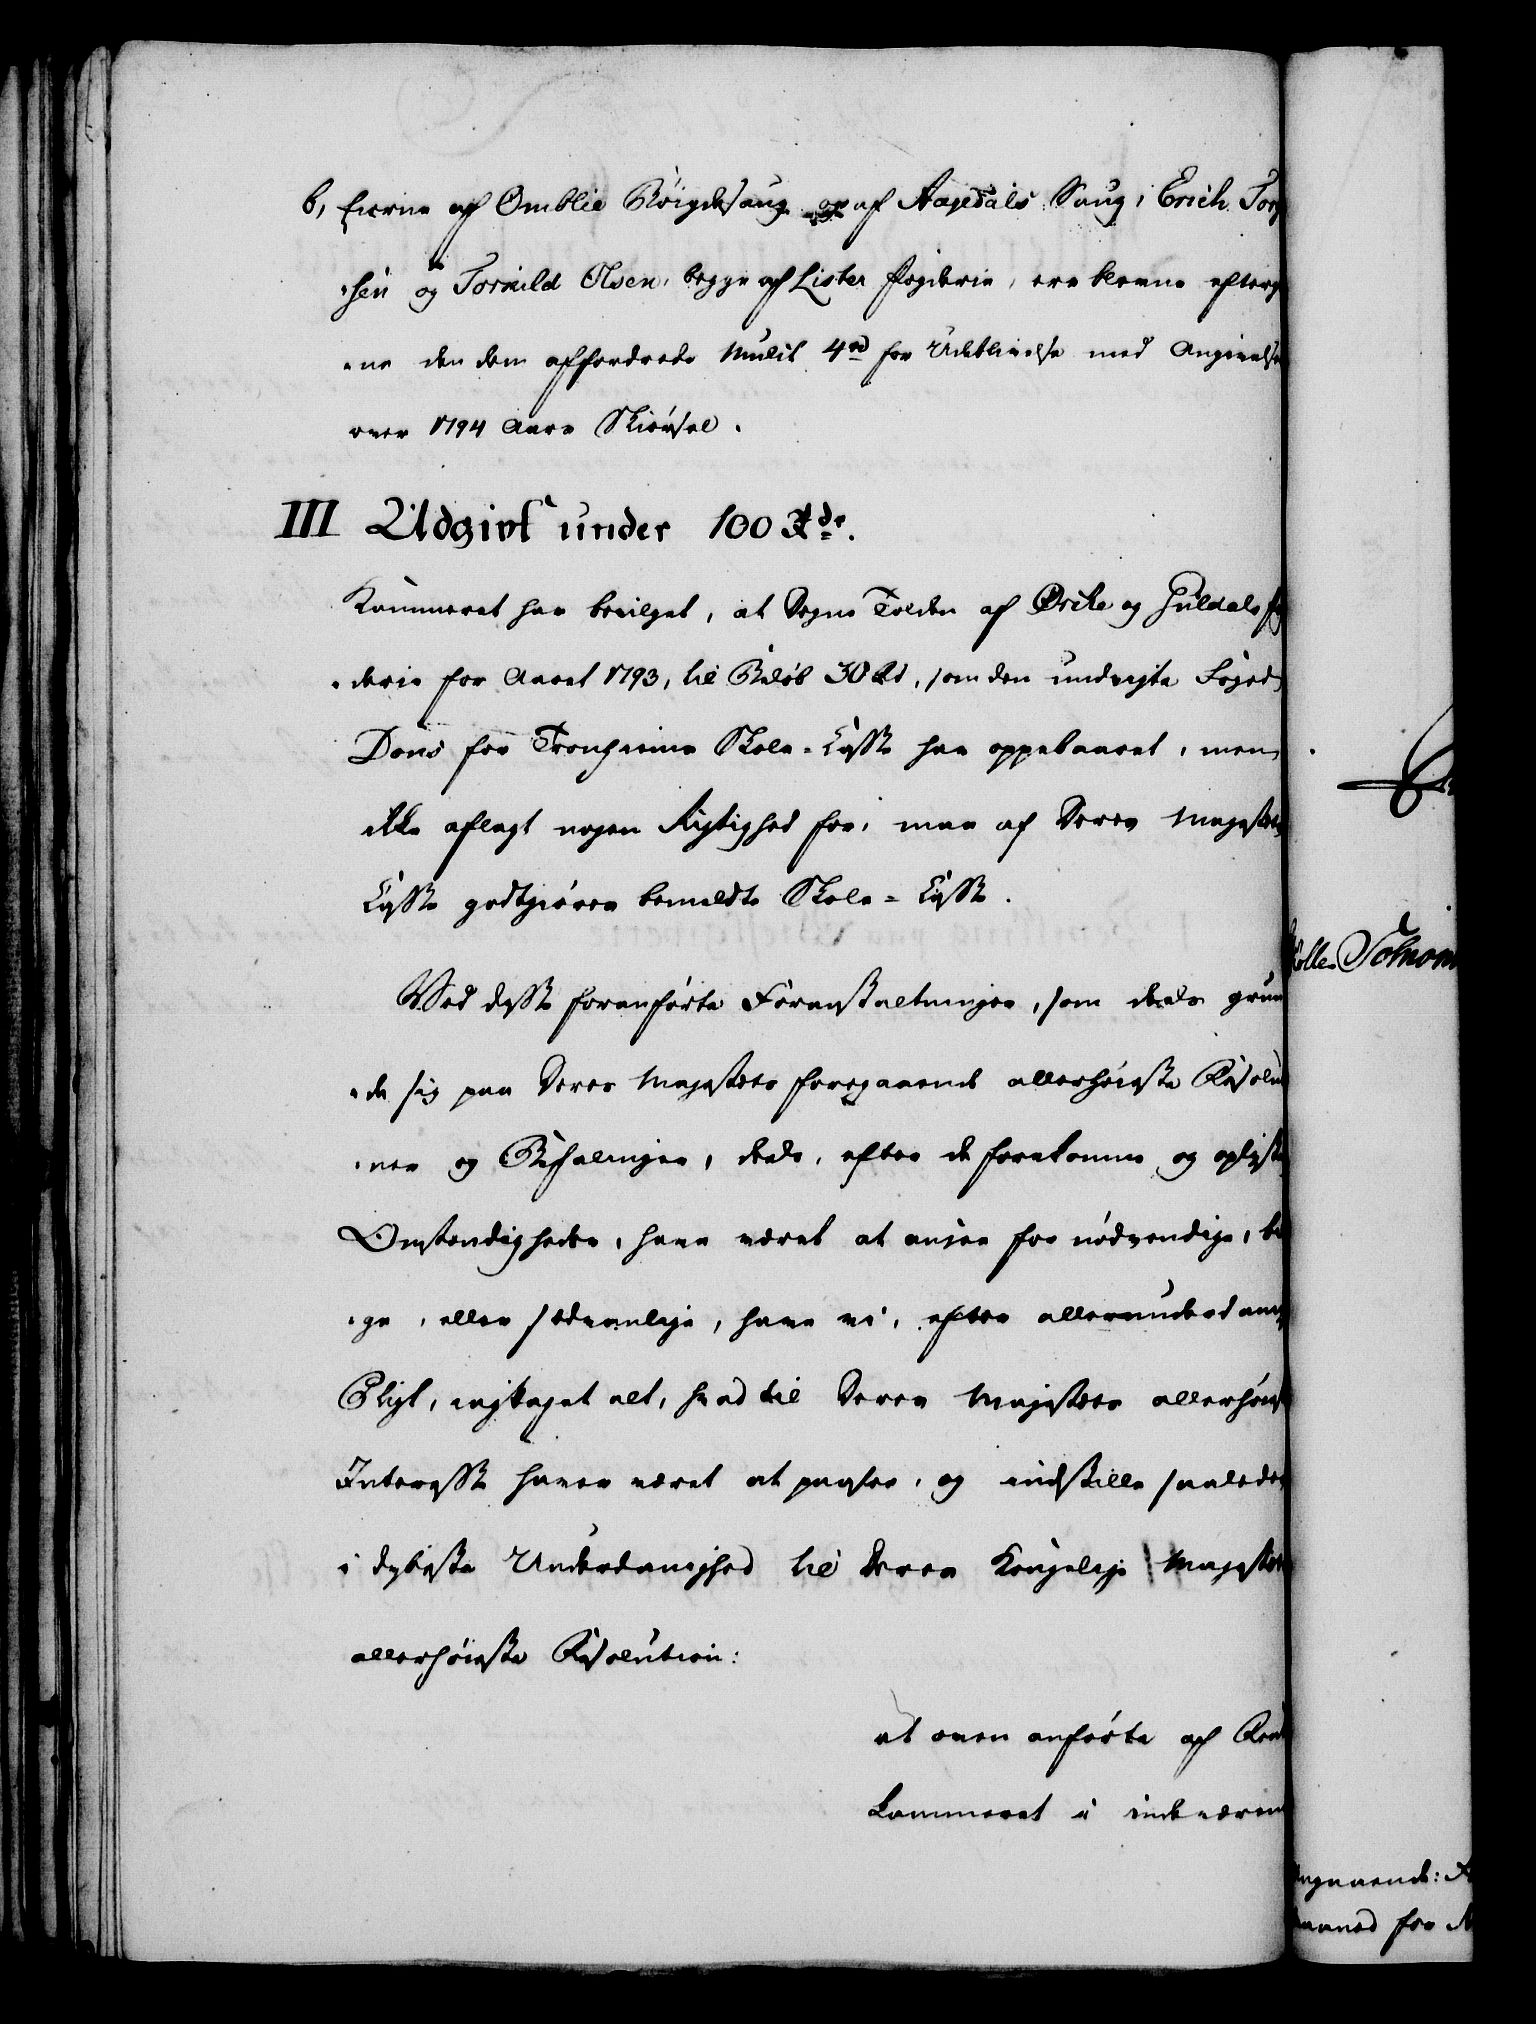 b, Eierne af Omblie Bøigdesaug og af Aagedals Saug, Erich Torg
sen og Tormild Olsen, begge af Lister Fogderie, ere blevne efterg
ne den dem affordrede Mulct 4 rd for Udeblivelse med Angivelse
over 1794 Aars Skiørsel.
III Udgivt under 100 Rdr.
Kammeret har bevilget, at Sogne Tolden af Örcke og Guldals Fo
derie for Aaret 1793, til Beløb 30 Rd, som den undvigte Foged
Dons for Tronhiems Skole-Casse har oppebaaret, men
ikke aflagt nogen Rigtighed for, maa af Deres Majestæts
Casse godtgiøres bemeldte Skole-Casse.
Ved disse foranførte Foranstaltninger, som deels grun
de sig paa Deres Majestæts foregaaende allerhøieste Resolu
ner og Befalinger, deels, efter de forekomne og oplyste
Omstændigheder, have været at ansee for nødvendige, bi
ge, eller sædvanlige, have vi, efter allerunderdanig
Pligt, iagttaget alt, hvad til Deres Majestæts allerhøieste
Interesse haver været at paasee, og indstille saaledes
i dybeste Underdanighed til Deres Kongelige Majestæts
allerhøieste Resolution:
at oven anførte af Rente
kammeret i indeværen